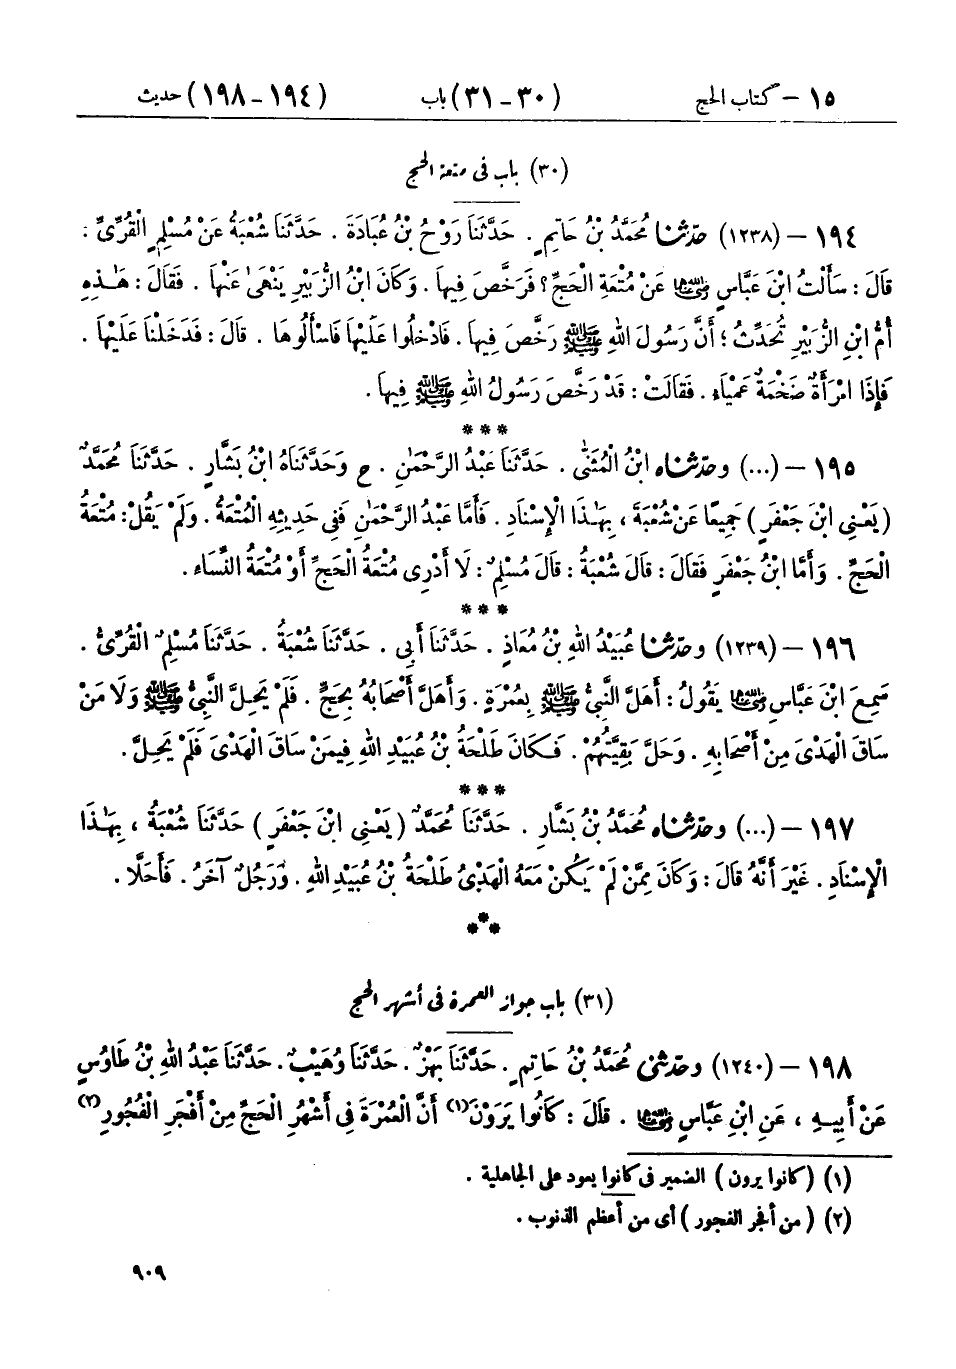 ١٥ – كتاب الحج (٣٠ – ٣١) باب (١٩٤ – ١٩٨) حديث
(٣٠) باب فى متعة الحج
١٩٤ – (١٢٣٨) حدّثنا مُحَمَّدُ بْنُ حَاتِمٍ . حَدَّثَنَا رَوْحُ بْنُ عُبَادَةَ . حَدَّثَنَا شُعْبَةُ عَنْ مُسْلِمٍ الْقُرِّىِّ ؛
قَالَ : سَأَلْتُ ابْنَ عَبَّاسٍ رضي الله عنهما عَنْ مُتْعَةِ الْحَجِّ ؟ فَرَخَّصَ فِيهَا . وَكَانَ ابْنُ الزُّبَيْرِ يَنْهَىٰ عَنْهَا . فَقَالَ : هَـٰذِهِ
أُمُّ ابْنِ الزُّبَيْرِ تُحَدِّثُ ؛ أَنَّ رَسُولَ اللهِ ﷺ رَخَّصَ فِيهَا . فَادْخُلُوا عَلَيْهَا فَاسْأَلُوهَا . قَالَ : فَدَخَلْنَا عَلَيْهَا .
فَإِذَا امْرَأَةٌ ضَخْمَةٌ عَمْيَاءُ . فَقَالَتْ : قَدْ رَخَّصَ رَسُولُ اللهِ ﷺ فِيهَا .
***
١٩٥ – (...) وحدّثناه ابْنُ الْمُثَنَّىٰ . حَدَّثَنَا عَبْدُ الرَّحْمَـٰنِ . ح وَحَدَّثَنَاهُ ابْنُ بَشَّارٍ . حَدَّثَنَا مُحَمَّدٌ
( يَعْنِى ابْنَ جَعْفَرٍ ) جَمِيعًا عَنْ شُعْبَةَ ، بِهَـٰذَا الْإِسْنَادِ . فَأَمَّا عَبْدُ الرَّحْمَـٰنِ فَفِى حَدِيثِهِ الْمُتْعَةُ . وَلَمْ يَقُلْ : مُتْعَةُ
الْحَجِّ . وَأَمَّا ابْنُ جَعْفَرٍ فَقَالَ : قَالَ شُعْبَةُ : قَالَ مُسْلِمٌ : لَا أَدْرِى مُتْعَةُ الْحَجِّ أَوْ مُتْعَةُ النِّسَاءِ .
***
١٩٦ – (١٢٣٩) وحدّثنا عُبَيْدُ اللهِ بْنُ مُعَاذٍ . حَدَّثَنَا أَبِى . حَدَّثَنَا شُعْبَةُ . حَدَّثَنَا مُسْلِمٌ الْقُرِّىُّ .
سَمِعَ ابْنَ عَبَّاسٍ رضي الله عنهما يَقُولُ : أَهَلَّ النَّبِىُّ ﷺ بِعُمْرَةٍ . وَأَهَلَّ أَصْحَابُهُ بِحَجٍّ . فَلَمْ يَحِلَّ النَّبِىُّ ﷺ وَلَا مَنْ
سَاقَ الْهَدْىَ مِنْ أَصْحَابِهِ . وَحَلَّ بَقِيَّتُهُمْ . فَكَانَ طَلْحَةُ بْنُ عُبَيْدِ اللهِ فِيمَنْ سَاقَ الْهَدْىَ فَلَمْ يَحِلَّ .
***
١٩٧ – (...) وحدّثناه مُحَمَّدُ بْنُ بَشَّارٍ . حَدَّثَنَا مُحَمَّدٌ ( يَعْنِى ابْنَ جَعْفَرٍ ) حَدَّثَنَا شُعْبَةُ ، بِهَـٰذَا
الْإِسْنَادِ . غَيْرَ أَنَّهُ قَالَ : وَكَانَ مِمَّنْ لَمْ يَكُنْ مَعَهُ الْهَدْىُ طَلْحَةُ بْنُ عُبَيْدِ اللهِ . وَرَجُلٌ آخَرُ . فَأَحَلَّا .
***
(٣١) باب جواز العمرة فى أشهر الحج
١٩٨ – (١٢٤٠) وحدّثنى مُحَمَّدُ بْنُ حَاتِمٍ . حَدَّثَنَا بَهْزٌ . حَدَّثَنَا وُهَيْبٌ . حَدَّثَنَا عَبْدُ اللهِ بْنُ طَاوُسٍ
عَنْ أَبِيهِ ، عَنِ ابْنِ عَبَّاسٍ رضي الله عنهما . قَالَ : كَانُوا يَرَوْنَ(١) أَنَّ الْعُمْرَةَ فِى أَشْهُرِ الْحَجِّ مِنْ أَفْجَرِ الْفُجُورِ(٢)
(١) ( كانوا يرون ) الضمير فى كانوا يعود على الجاهلية .
(٢) ( من أفجر الفجور ) أى من أعظم الذنوب .
٩٠٩